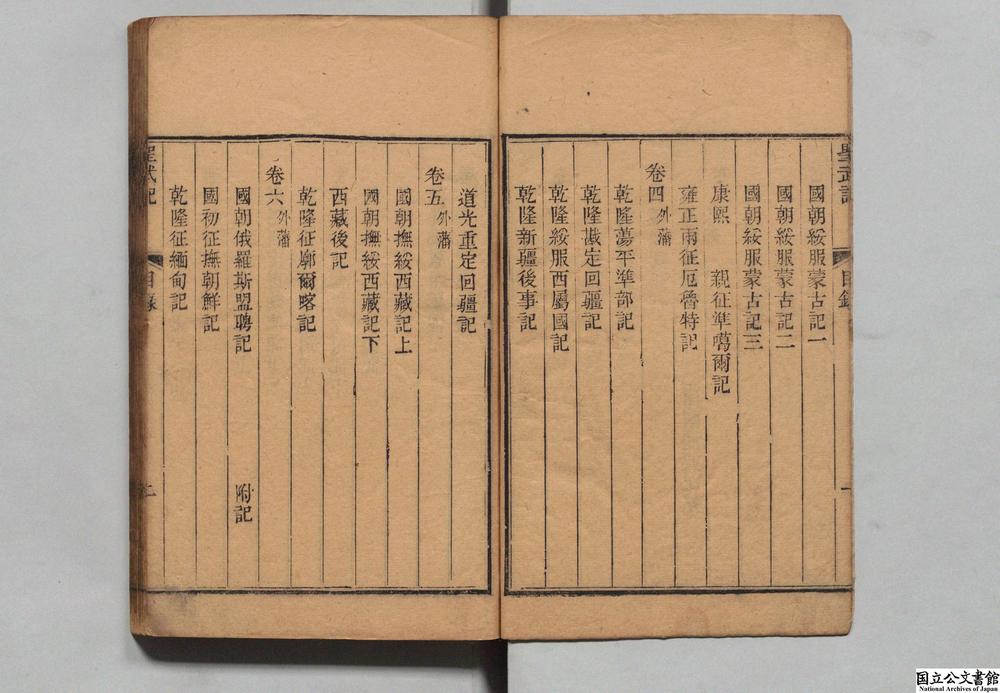 聖武記 目錄 一
國朝綏服蒙古記一
國朝綏服蒙古記二
國朝綏服蒙古記三
康熙 親征準噶爾記
雍正兩征厄魯特記
卷四 外藩
乾隆蕩平準部記
乾隆戡定回疆記
乾隆綏服西屬國記
乾隆新疆後事記
道光重定回疆記
卷五 外藩
國朝撫綏西藏記上
國朝撫綏西藏記下
西藏後記
乾隆征廓爾喀記
卷六 外藩
國朝俄羅斯盟聘記 附記
國初征撫朝鮮記
乾隆征緬甸記
聖武記 目錄 二
国立公文書館
National Archives of Japan